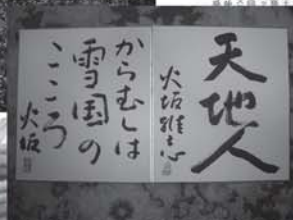 天地人
火坂雅志
からむしは
雪国の
こころ
火坂